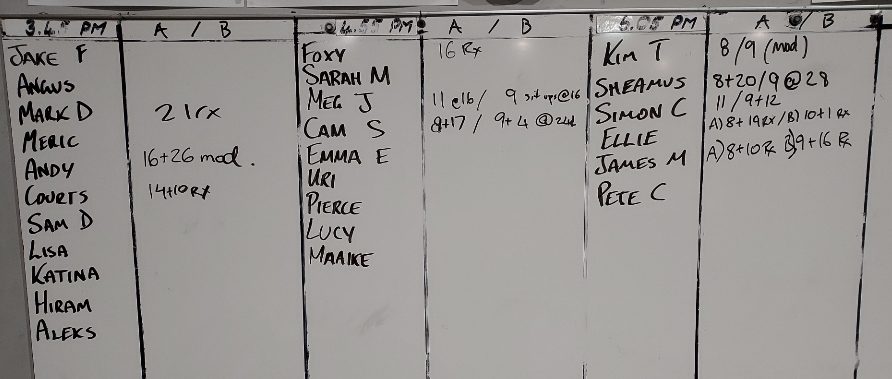 PM A / B
JAKE F
ANGUS
MARK D 21rx
MERIC
ANDY 16+26 mod.
COURTS 14+10 Rx
SAM D
LISA
KATINA
HIRAM
ALEKS
PM A / B
FOXY 16 Rx
SARAH M
MEG J 11 @16 / 9 sit ups@16
CAM S 8+17 / 9+4 @24
EMMA E
URI
PIERCE
LUCY
MAAIKE
PM A / B
KIM T 8/9 (mod)
SHEAMUS 8+20/9 @ 28
SIMON C 11 / 9+12
ELLIE A) 8+19 Rx / B) 10+1 Rx
JAMES M A) 8+10 Rx B) 9+16 Rx
PETE C